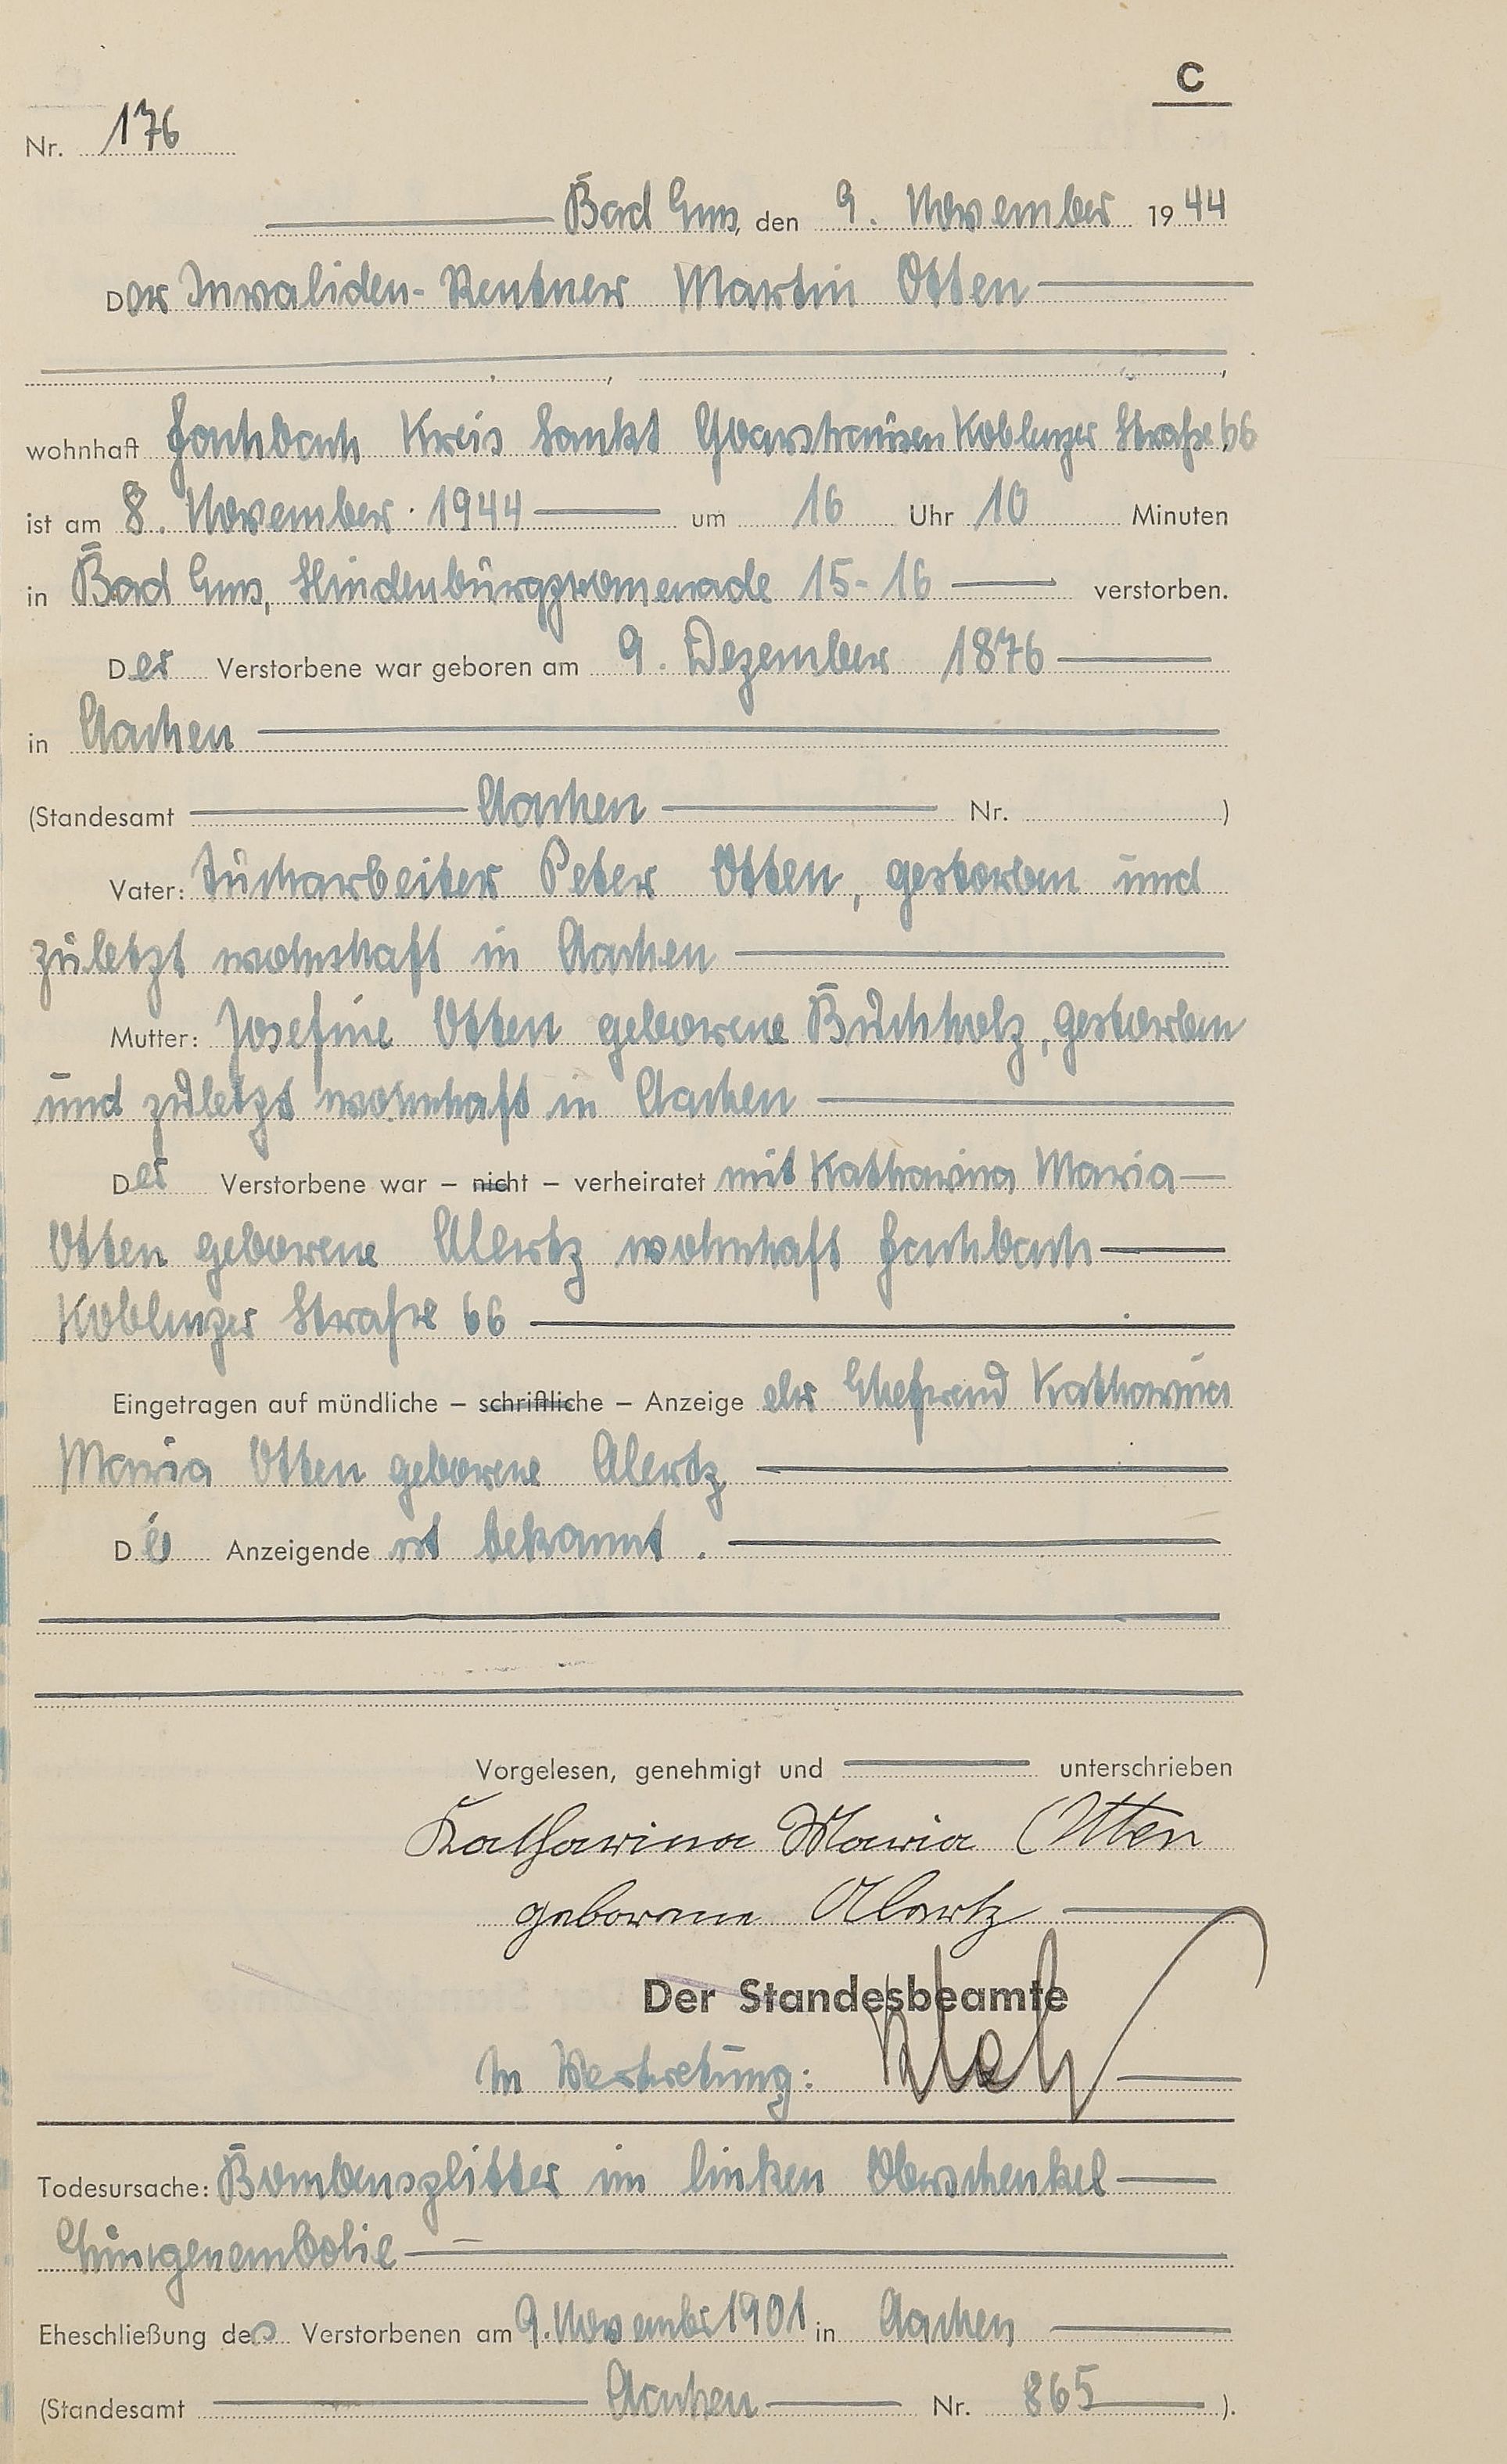 C
Nr. 176
Bad Ems, den 9. November 1944
Der Invaliden-Rentner Martin Otten
wohnhaft Fachbach Kreis Sankt Goarshausen Koblenzer Straße 66
ist am 8. November 1944 um 16 Uhr 10 Minuten
in Bad Ems, Hindenburgpromenade 15-16 verstorben.
Der Verstorbene war geboren am 9. Dezember 1876
in Aachen
(Standesamt Aachen Nr. )
Vater: Tucharbeiter Peter Otten, gestorben und
zuletzt wohnhaft in Aachen
Mutter: Josefine Otten geborene Buchholz, gestorben
und zuletzt wohnhaft in Aachen
Der Verstorbene war – nicht – verheiratet mit Katharina Maria
Otten geborene Alertz wohnhaft Fachbach
Koblenzer Straße 66
Eingetragen auf mündliche – schriftliche – Anzeige der Ehefrau Katharina
Maria Otten geborene Alertz
Die Anzeigende ist bekannt.
Vorgelesen, genehmigt und unterschrieben
Katharina Maria Otten
geborene Alertz
Der Standesbeamte
In Vertretung:
Todesursache: Bombensplitter im linken Oberschenkel
Lungenembolie
Eheschließung des Verstorbenen am 9. November 1901 in Aachen
(Standesamt Aachen Nr. 865 ).